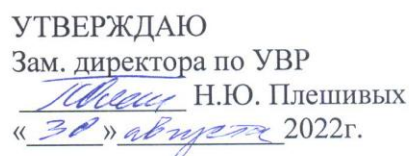 УТВЕРЖДАЮ
Зам. директора по УВР
Н.Ю. Плешивых
« 30 » августа 2022г.